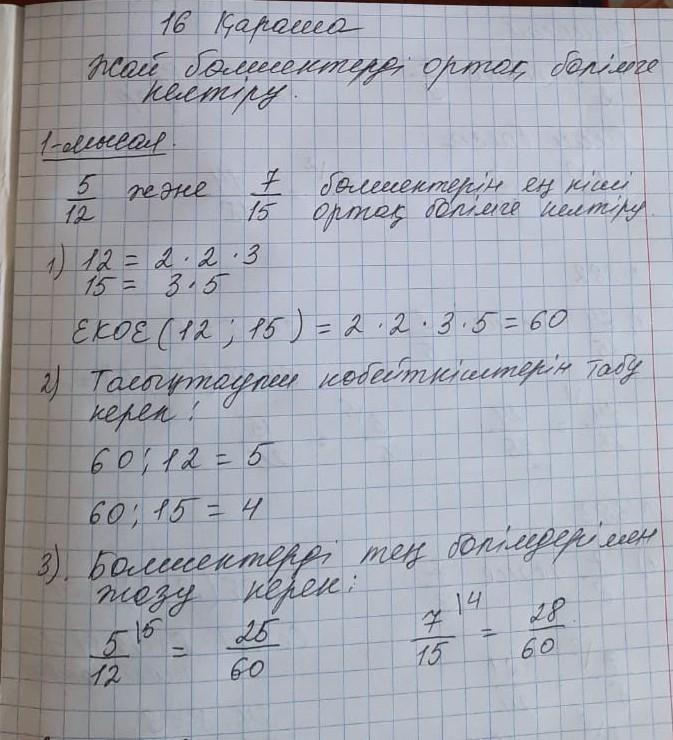 16 Қараша
Жай бөлшектерді ортақ бөлімге
келтіру.
1-мысал.
5/12 және 7/15 бөлшектерін ең кіші
ортақ бөлімге келтіру.
1) 12 = 2 · 2 · 3
15 = 3 · 5
ЕКОЕ (12 ; 15) = 2 · 2 · 3 · 5 = 60
2) Толықтауыш көбейткіштерін табу
керек:
60 : 12 = 5
60 : 15 = 4
3). Бөлшектерді тең бөлімдерімен
жазу керек:
5/12 \5 = 25/60 7/15 \4 = 28/60